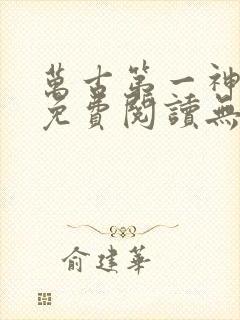 萬古第一神
免費閱讀無
俞建華